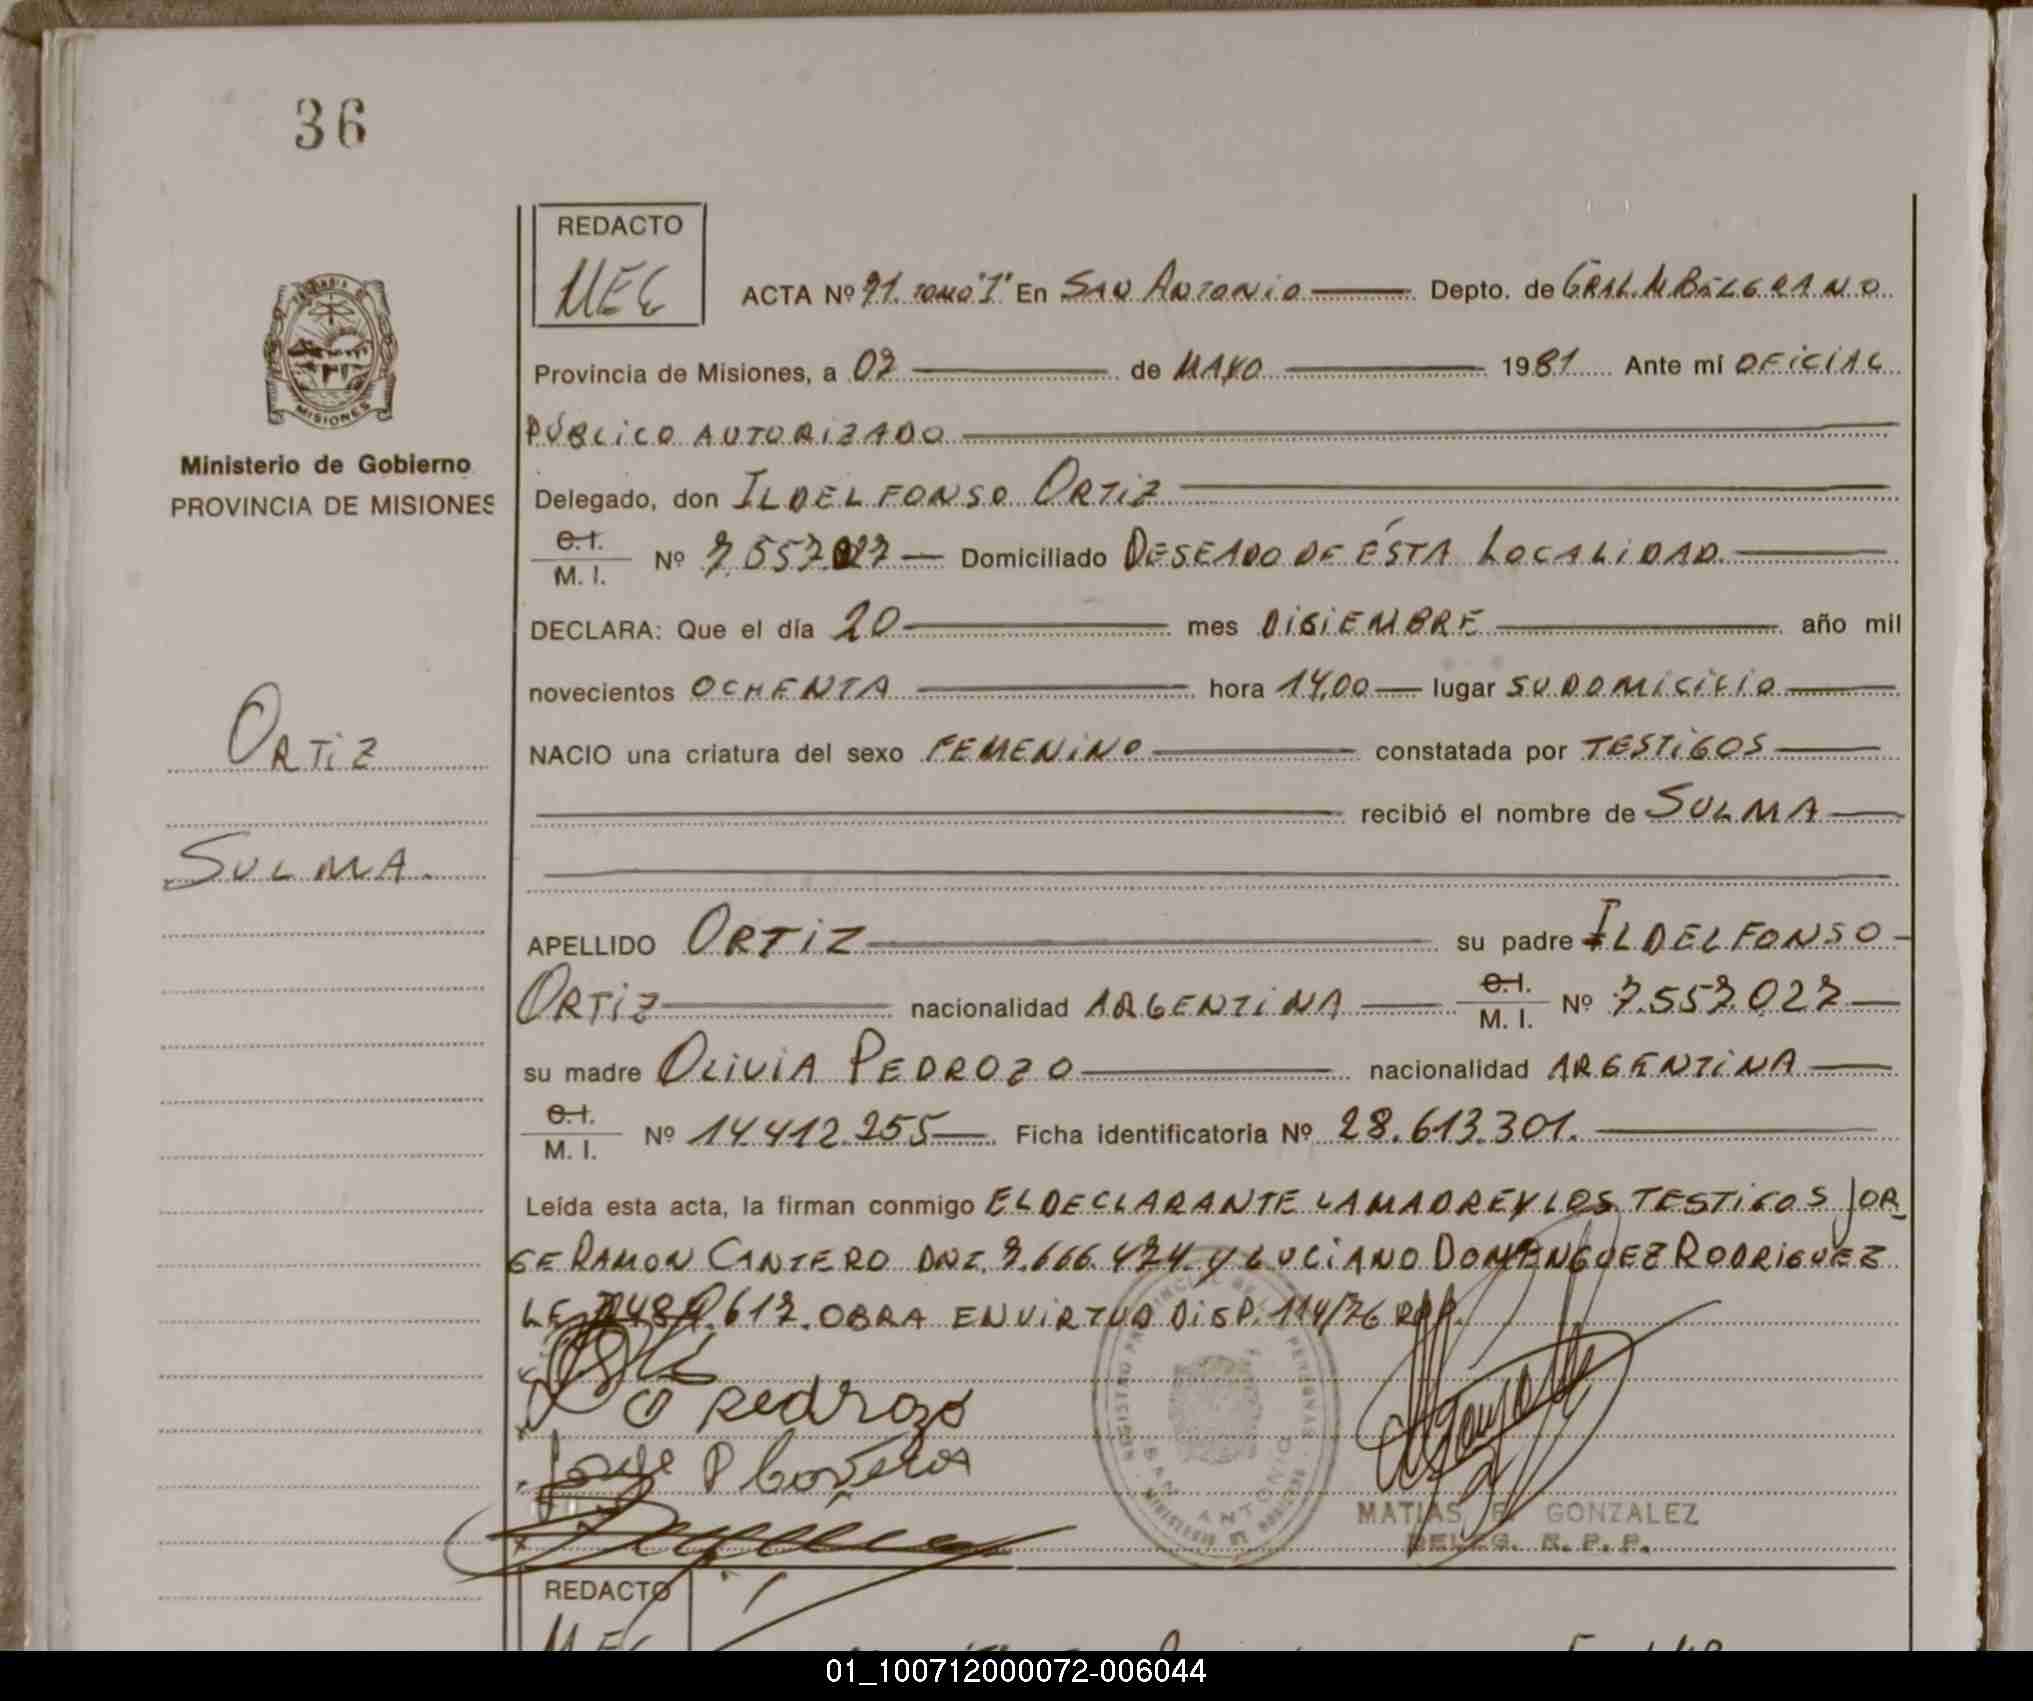 36
REDACTO
MEG
ACTA Nº 71 TOMO "I" En SAN ANTONIO Depto. de GRAL. M. BELGRANO
Provincia de Misiones, a 07 de MAYO 1981 Ante mí OFICIAL
PÚBLICO AUTORIZADO
MISIONES
Ministerio de Gobierno
PROVINCIA DE MISIONES
Delegado, don ILDELFONSO ORTIZ
C.I.
M. I. Nº 7.557.027 Domiciliado DESEADO DE ÉSTA LOCALIDAD.
DECLARA: Que el día 20 mes DISIEMBRE año mil
novecientos OCHENTA hora 14,00 lugar SU DOMICILIO
ORTIZ
NACIO una criatura del sexo FEMENINO constatada por TESTIGOS
recibió el nombre de SULMA
SULMA.
APELLIDO ORTIZ su padre ILDELFONSO
ORTIZ nacionalidad ARGENTINA C.I. M. I. Nº 7.557.027
su madre OLIVIA PEDROZO nacionalidad ARGENTINA
C.I.
M. I. Nº 14.412.255 Ficha identificatoria Nº 28.613.301.
Leída esta acta, la firman conmigo EL DECLARANTE LA MADRE Y LOS TESTIGOS JOR
GE RAMON CANTERO DNI. 7.666.474. Y LUCIANO DOMINGUEZ RODRIGUEZ
LE 617. OBRA EN VIRTUD DISP. 114/76 RPP.
O pedrozo
Jorge
REGISTRO PROVINCIAL DE LAS PERSONAS
SAN ANTONIO
MATIAS E. GONZALEZ
DELEG. R. P. P.
REDACTO
MEG
01_100712000072-006044